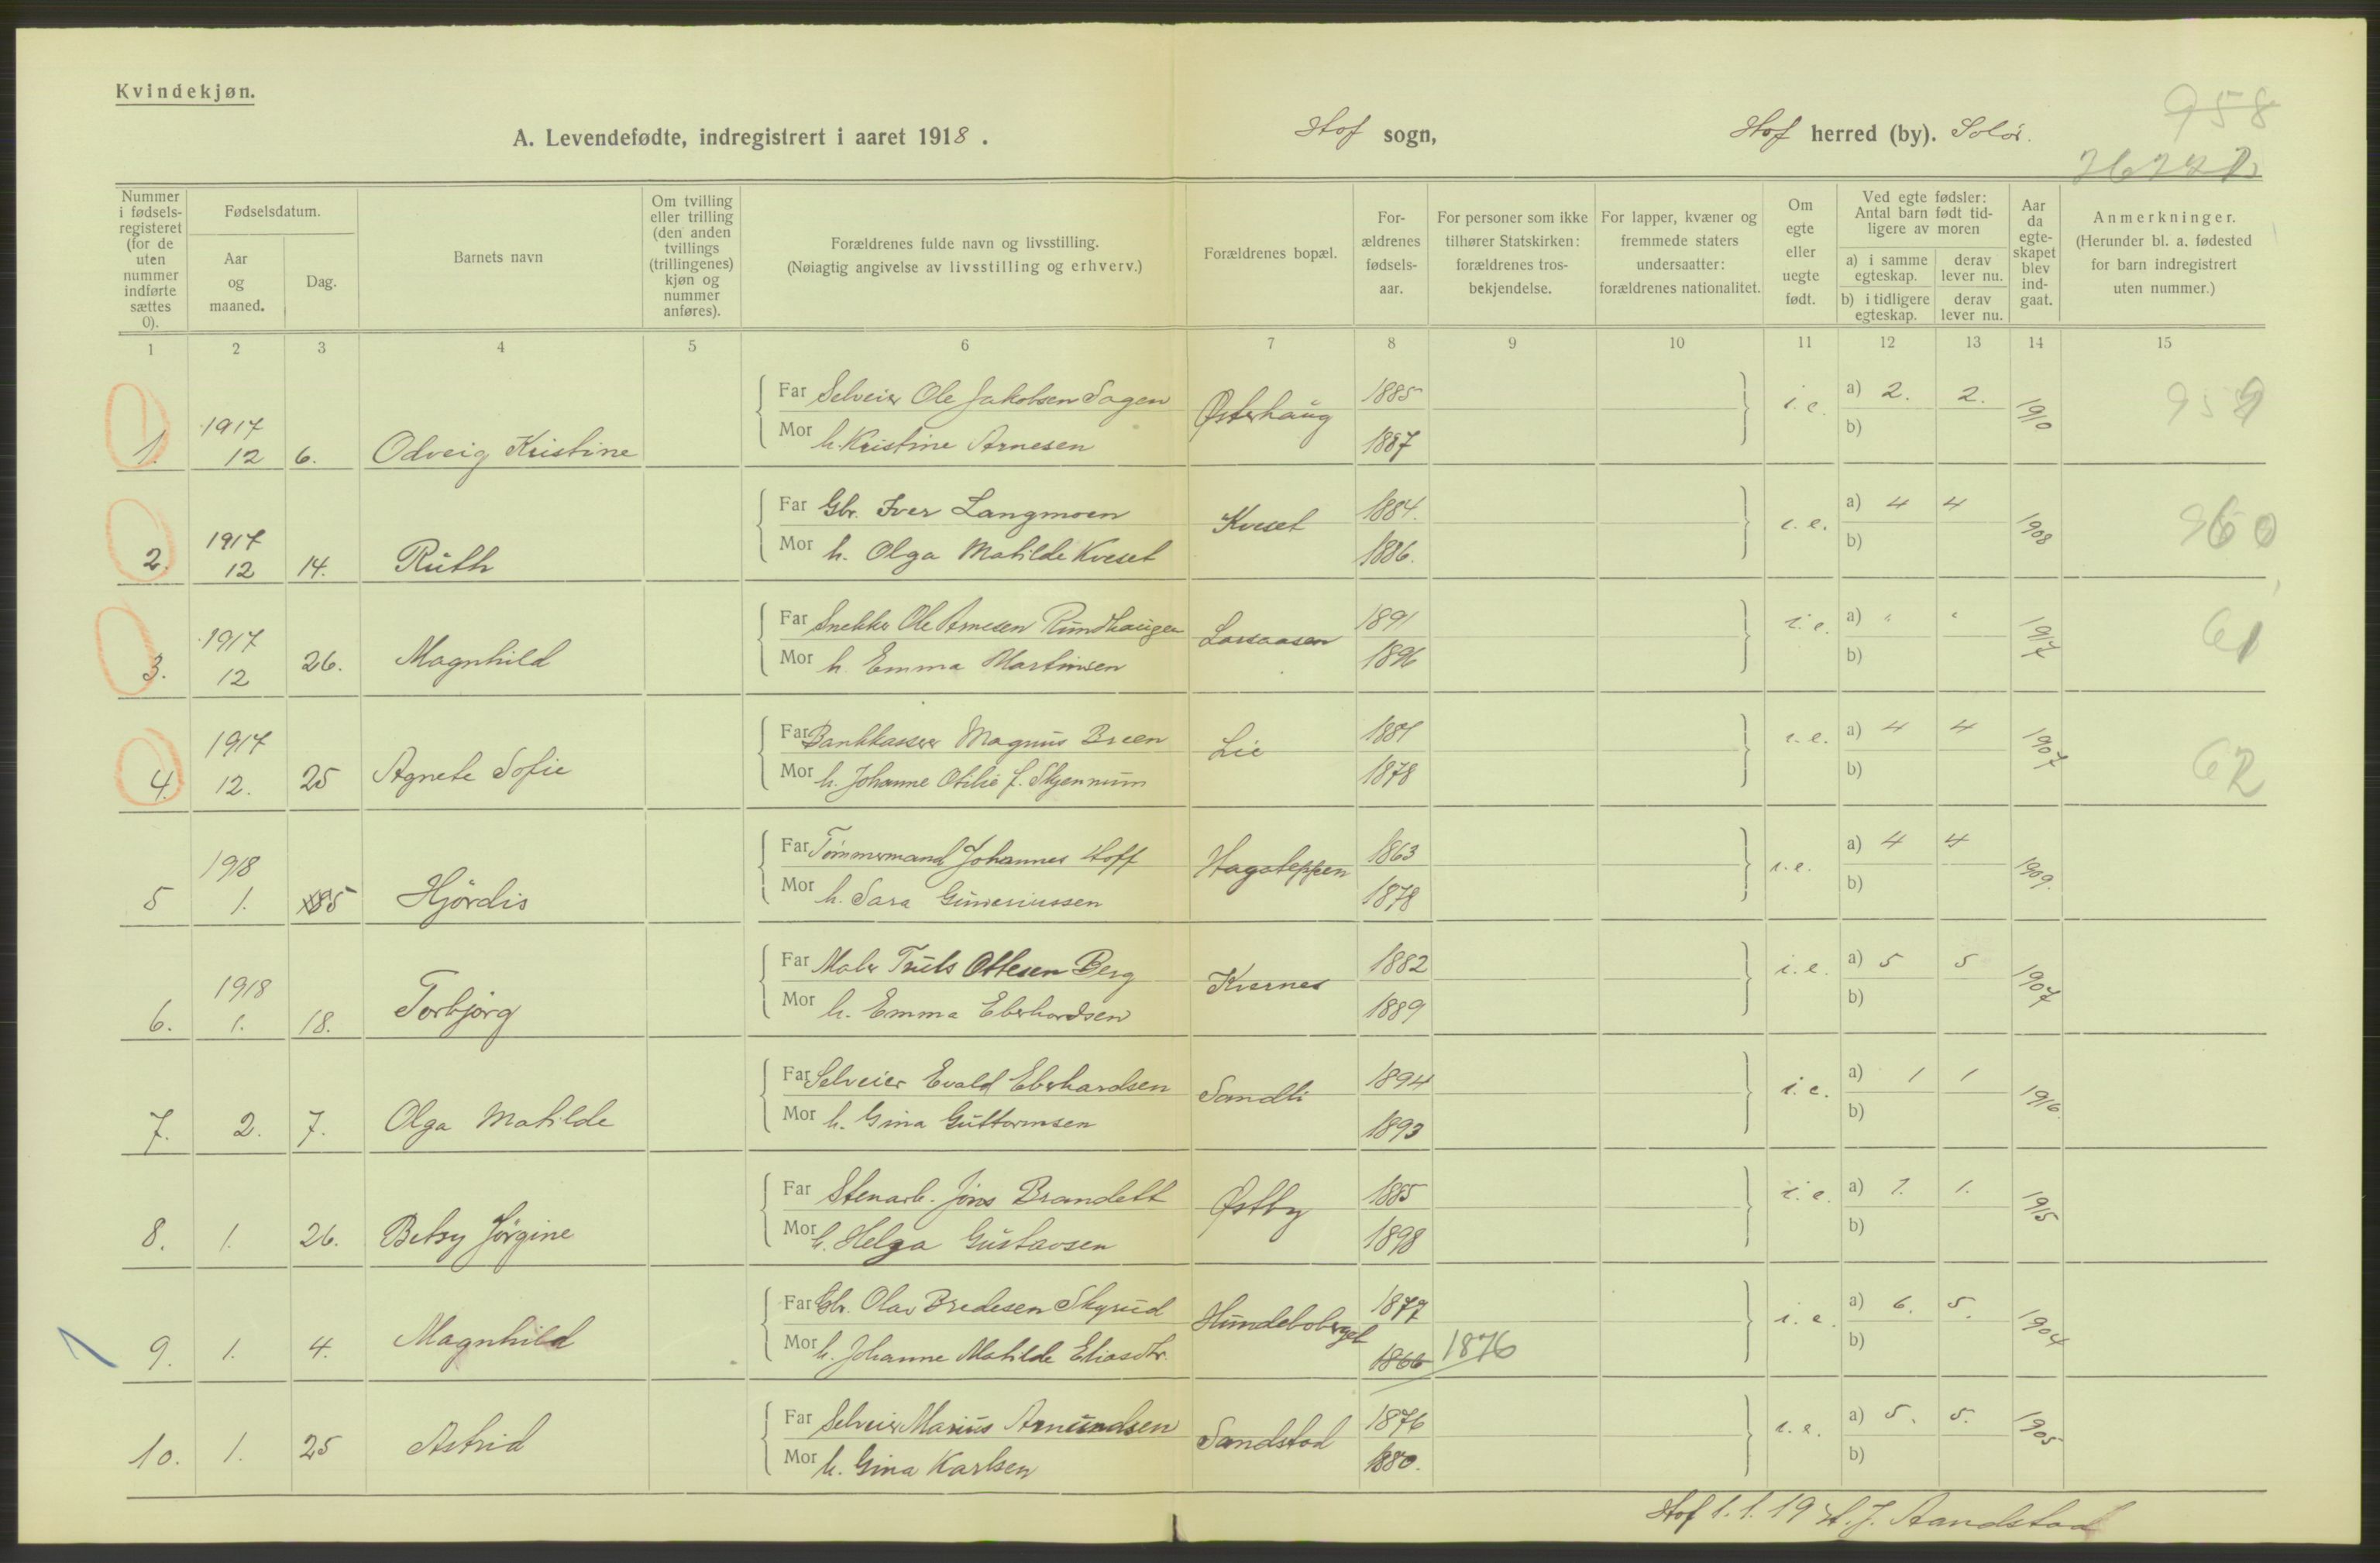 Kvindekjøn.
A. Levendefødte, indregistrert i aaret 1918.
Hof sogn,
Hof herred (by). Solør.
958
Nummer i fødsels-registeret (for de uten nummer indførte sættes 0).
Fødselsdatum.
Aar og maaned.
Dag.
Barnets navn
Om tvilling eller trilling (den anden tvillings (trillingenes) kjøn og nummer anføres).
Forældrenes fulde navn og livsstilling.
(Nøiagtig angivelse av livsstilling og erhverv.)
Forældrenes bopæl.
For-ældrenes fødsels-aar.
For personer som ikke tilhører Statskirken: forældrenes tros-bekjendelse.
For lapper, kvæner og fremmede staters undersaatter: forældrenes nationalitet.
Om egte eller uegte født.
Ved egte fødsler: Antal barn født tid-ligere av moren
a) i samme egteskap.
derav lever nu.
b) i tidligere egteskap.
derav lever nu.
Aar da egte-skapet blev ind-gaat.
Anmerkninger.
(Herunder bl. a. fødested for barn indregistrert uten nummer.)
1 2 3 4 5 6 7 8 9 10 11 12 13 14 15
1. 1917 12 6. Odveig Kristine
Far Selveier Ole Jakobsen Sagen Østerhaug 1885 i.e. a) 2. 2. 1910 959
Mor h. Kristine Arnesen 1887 b)
2. 1917 12 14. Ruth
Far Gbr. Iver Langmoen Kveset 1884. i.e. a) 4 4 1908 960
Mor h. Olga Matilde Kveset 1886. b)
3. 1917 12 26. Magnhild
Far Snekker Ole Arnesen Rundhaugen Larsaasen 1891 i.e. a) " " 1917 61
Mor h. Emma Martinsen 1896 b)
4. 1917 12. 25 Agnete Sofie
Far Bankkasserer Magnus Breen Lie 1881 i.e. a) 4 4 1907 62
Mor h. Johanne Otilie f. Skjennum 1878 b)
5 1918 1. 5 Hjørdis
Far Tømmermand Johannes Hoff Hagateppen 1863 i.e. a) 4 4 1909.
Mor h. Sara Guneriussen 1878 b)
6. 1918 1. 18. Torbjørg
Far Maler Truls Ottesen Berg Kvernes 1882 i.e. a) 5 5 1907
Mor h. Emma Eberhardsen 1889 b)
7. 2. 7. Olga Matilde
Far Selveier Evald Eberhardsen Sandli 1894 i.e. a) 1 1 1916.
Mor h. Gina Guttormsen 1893 b)
8. 1. 26. Betsy Jørgine
Far Stenarb. Jøns Brandett Østby 1885 i.e. a) 1. 1. 1915
Mor h. Helga Gustavsen 1898 b)
9. 1. 4. Magnhild
Far Gbr. Olav Bredesen Skyrud Hundeboberget 1877 i.e. a) 6. 5. 1904
Mor h. Johanne Matilde Eliasdtr. 1866 1876 b)
10. 1. 25 Astrid
Far Selveier Marius Amundsen Sandstad 1876 i.e. a) 5. 5. 1905
Mor h. Gina Karlsen 1880. b)
Hof 1.1.19 H. J. Aandstad